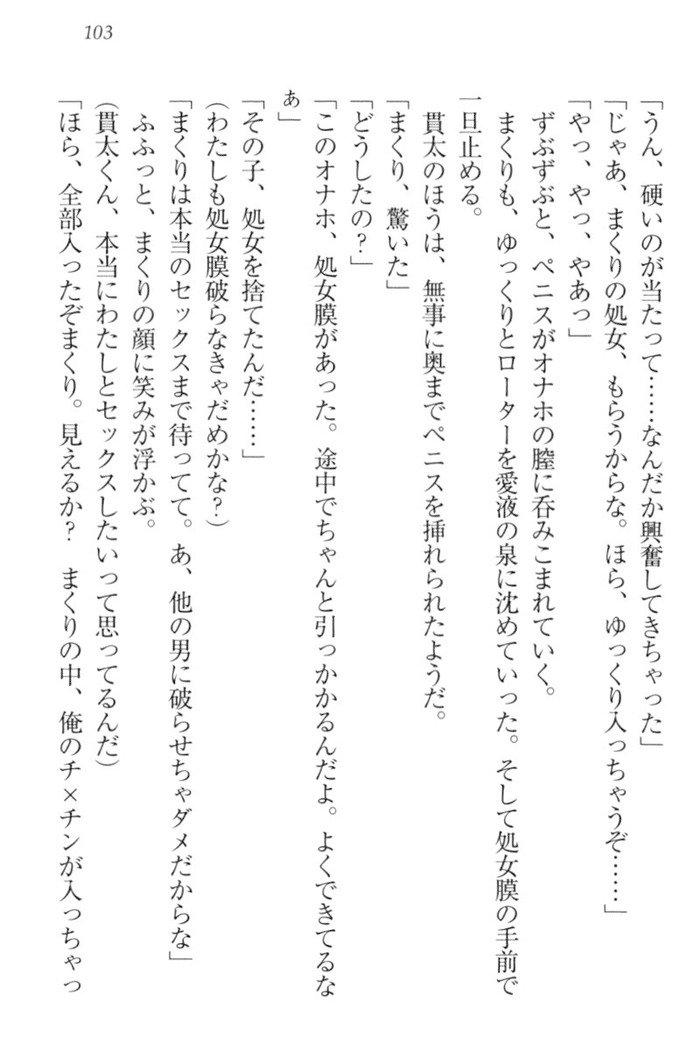 103
「うん、硬いのが当たって……なんだか興奮してきちゃった」
「じゃあ、まくりの処女、もらうからな。ほら、ゆっくり入っちゃうぞ……」
「やっ、やっ、やあっ」
ずぶずぶと、ペニスがオナホの膣に呑みこまれていく。
まくりも、ゆっくりとローターを愛液の泉に沈めていった。そして処女膜の手前で
一旦止める。
貫太のほうは、無事に奥までペニスを挿れられたようだ。
「まくり、驚いた」
「どうしたの？」
「このオナホ、処女膜があった。途中でちゃんと引っかかるんだよ。よくできてるな
ぁ」
「その子、処女を捨てたんだ……」
（わたしも処女膜破らなきゃだめかな？）
「まくりは本当のセックスまで待ってて。あ、他の男に破らせちゃダメだからな」
ふふっと、まくりの顔に笑みが浮かぶ。
（貫太くん、本当にわたしとセックスしたいって思ってるんだ）
「ほら、全部入ったぞまくり。見えるか？　まくりの中、俺のチ×チンが入っちゃっ